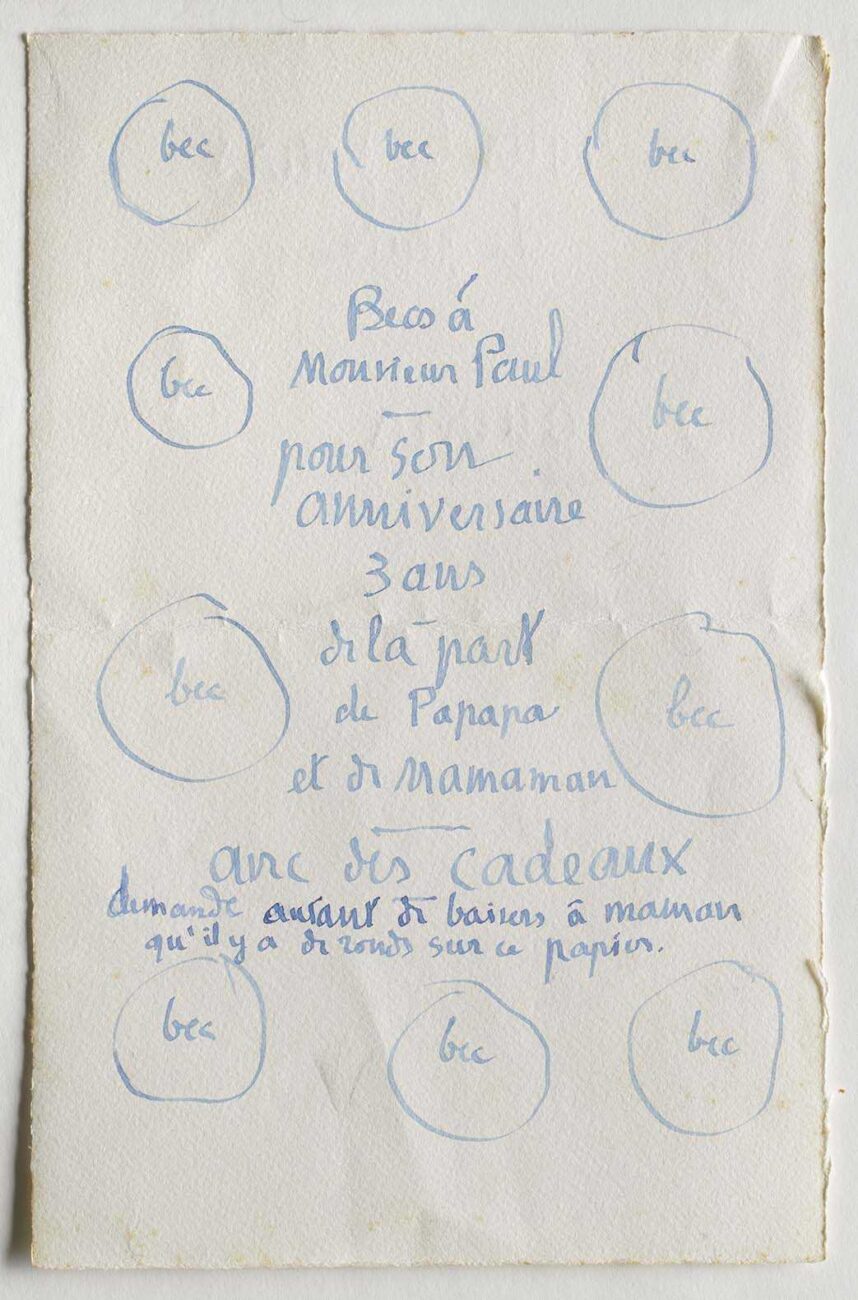 bec bec bec
Becs à
Monsieur Paul
bec
bec
pour son
anniversaire
3 ans
de la part
bec
de Papapa
bec
et de Mamaman
avec des cadeaux
demande autant de baisers à maman
qu'il y a de ronds sur ce papier.
bec bec bec